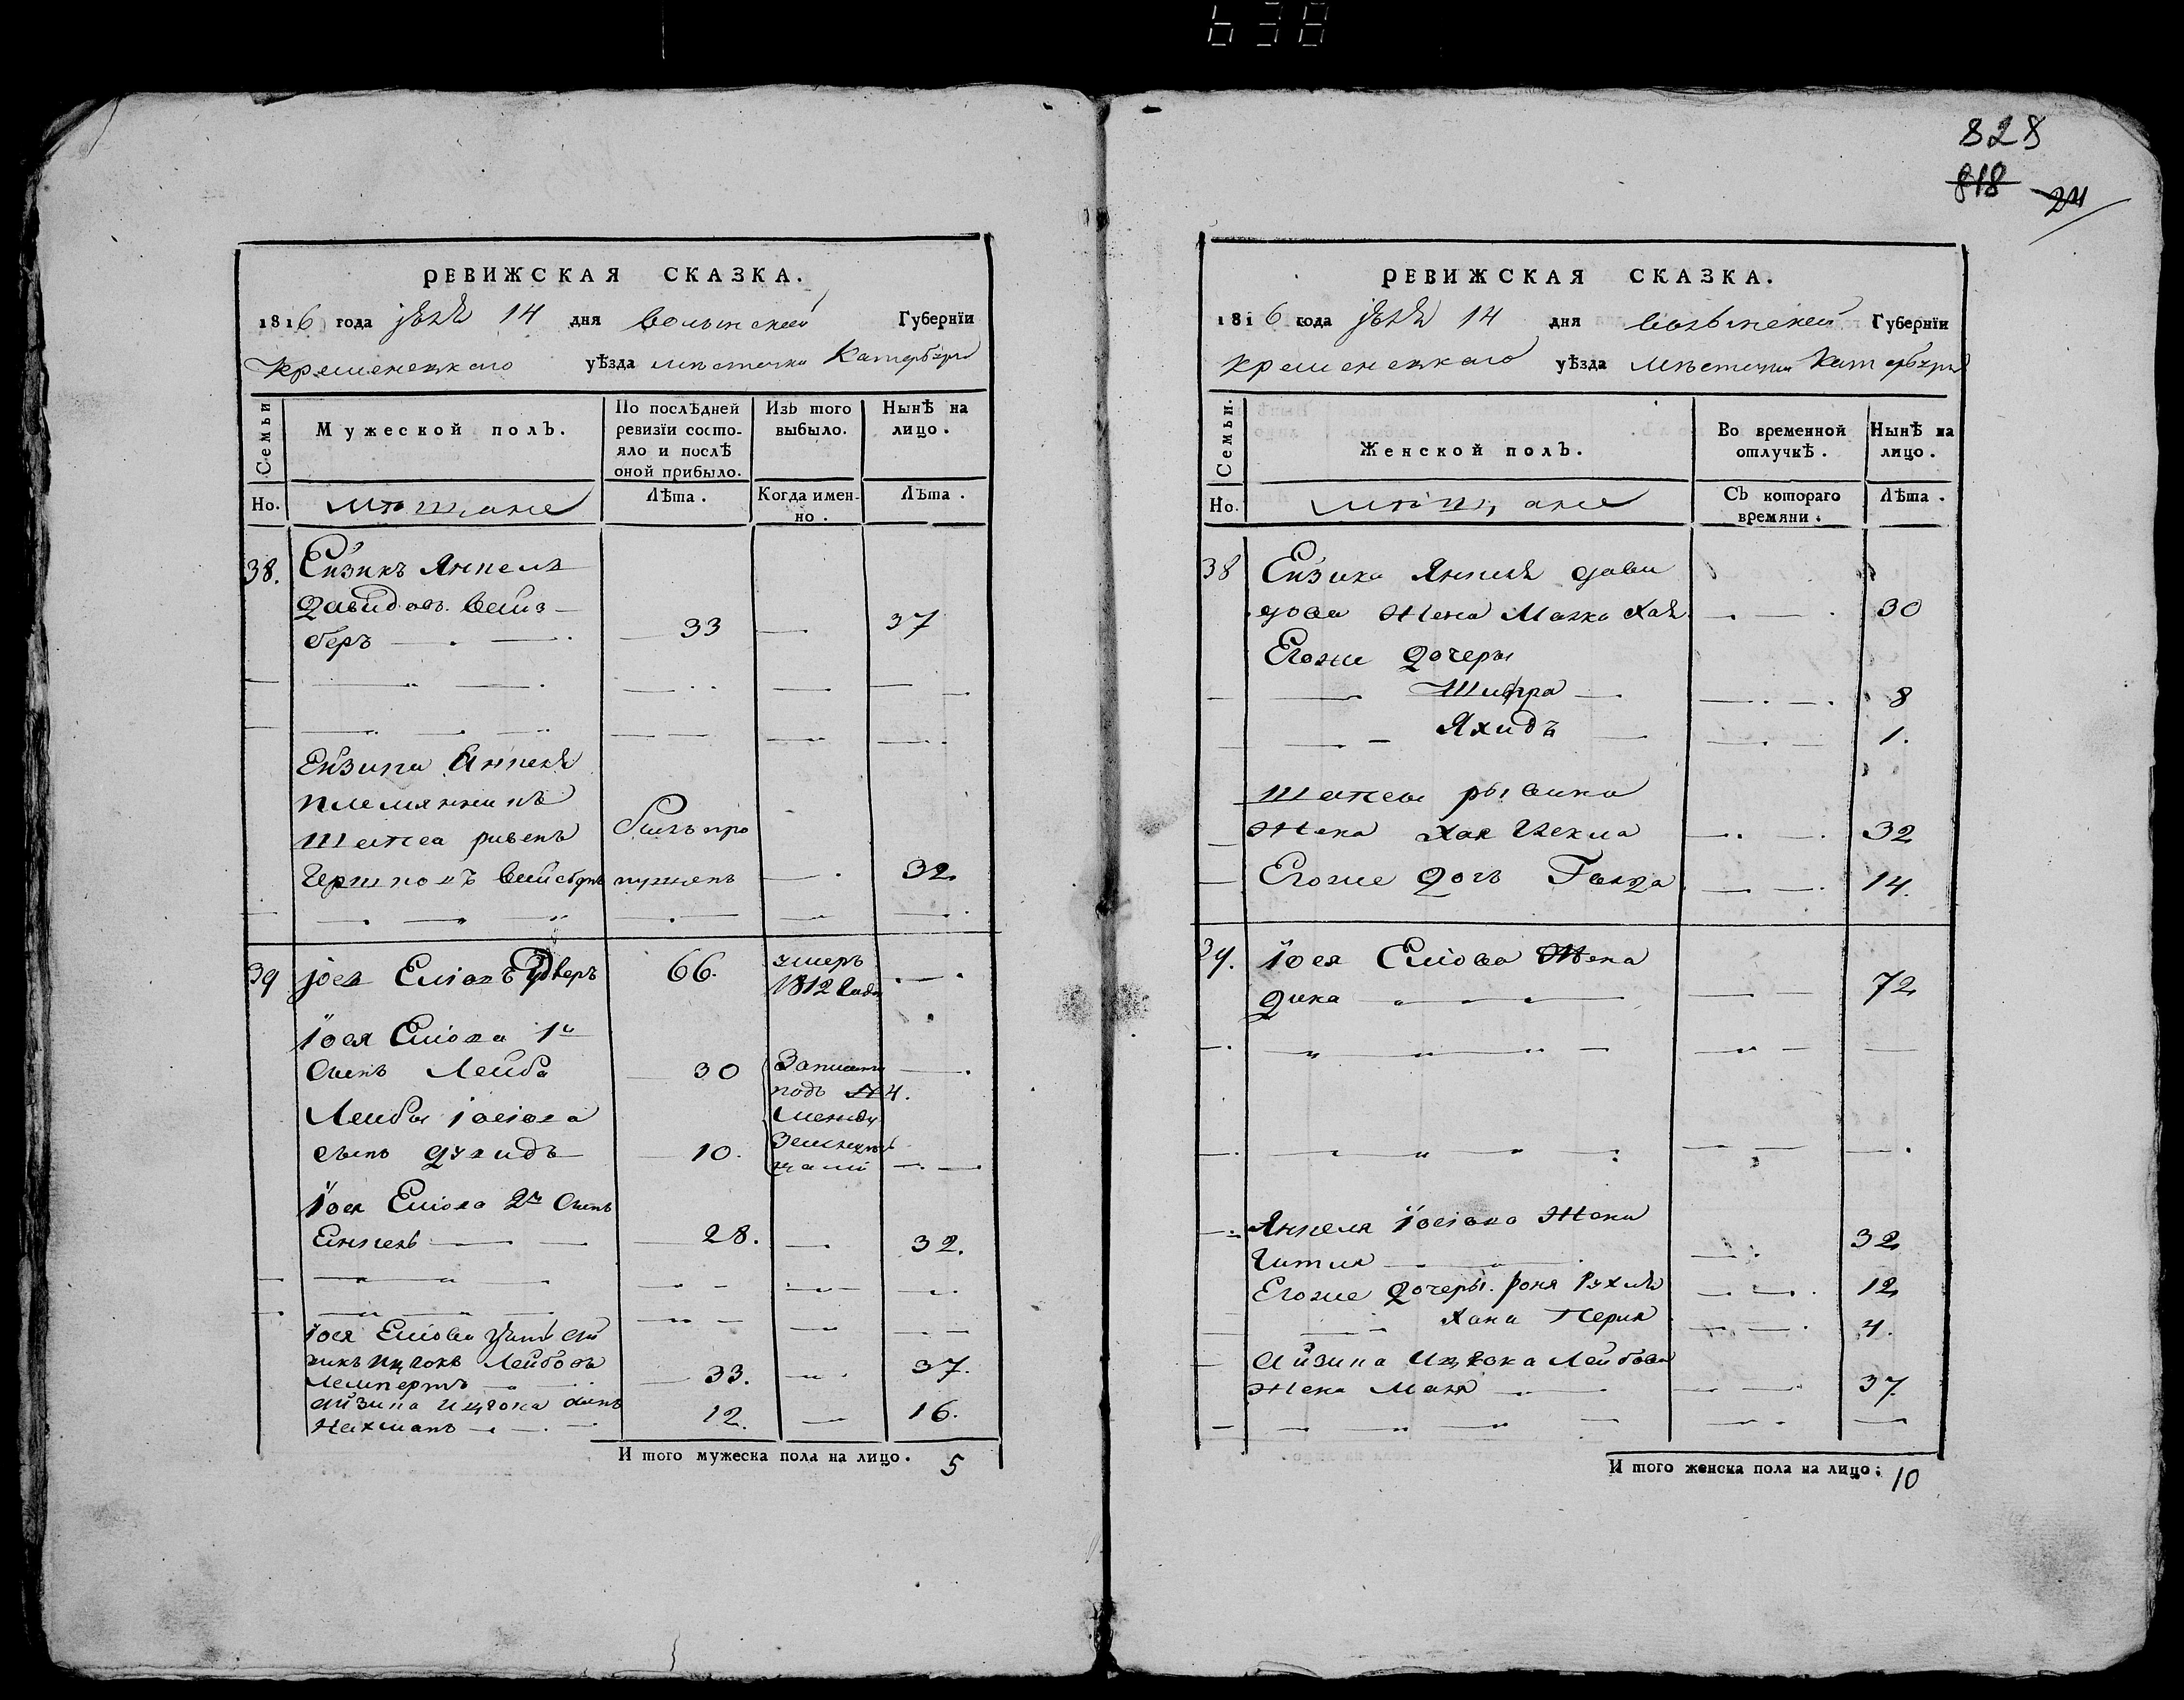 638
РЕВИЖСКАЯ СКАЗКА.
1816 года 14 дня Волынской Губернїи
Кременецкаго уѣзда мѣстечка Катербурга
Семьи
Мужеской полъ.
По послѣдней ревизїи состояло и послѣ оной прибыло.
Изъ того выбыло.
Нынѣ на лицо.
Но. мѣщане Лѣта. Когда именно. Лѣта.
38. Ейзикъ Янкель
Давидовъ Вейз-
беръ 33 37
Ейзика Янкеля
племянникъ
Шаѧ рывенъ Былъ про
Гершковъ пущенъ 32
39 Іось 66. умеръ
1812 года
Іося 1й
сынъ Лейба 30 Записанъ
подъ № 4.
Лейбы Іосіова между
сынъ 10. земледѣль
цами
Іося 2й сынъ
Янкель 28. 32.
Іося зять Ай
зикъ Ицкокъ Лейбовъ
Лемпертъ 33. 37.
Айзика Ицкока сынъ
Нахманъ 12. 16.
И того мужеска пола на лицо. 5
828
818 24
РЕВИЖСКАЯ СКАЗКА.
1816 года 14 дня Волынской Губернїи
Кременецкаго уѣзда Мѣстечка Катербурга
Семьи.
Женской полъ.
Во временной отлучкѣ.
Нынѣ на лицо.
Но. мѣщане Съ котораго времяни. Лѣта.
38 Ейзика Янкеля Дави
дова Жена Малка Хая 30
Егоже Дочеры
Шифра 8
Яхидъ 1.
рывина
Жена Хая 32
Егоже Дочь 14.
39. Іося Жена
Дина 72
Янкеля Іосіова Жена
Гитля 32
Егоже Дочеры. Роня Рухля 12
Хана Перля 4.
Айзика Ицкока Лейбова
Жена Маля 37
И того женска пола на лицо: 10